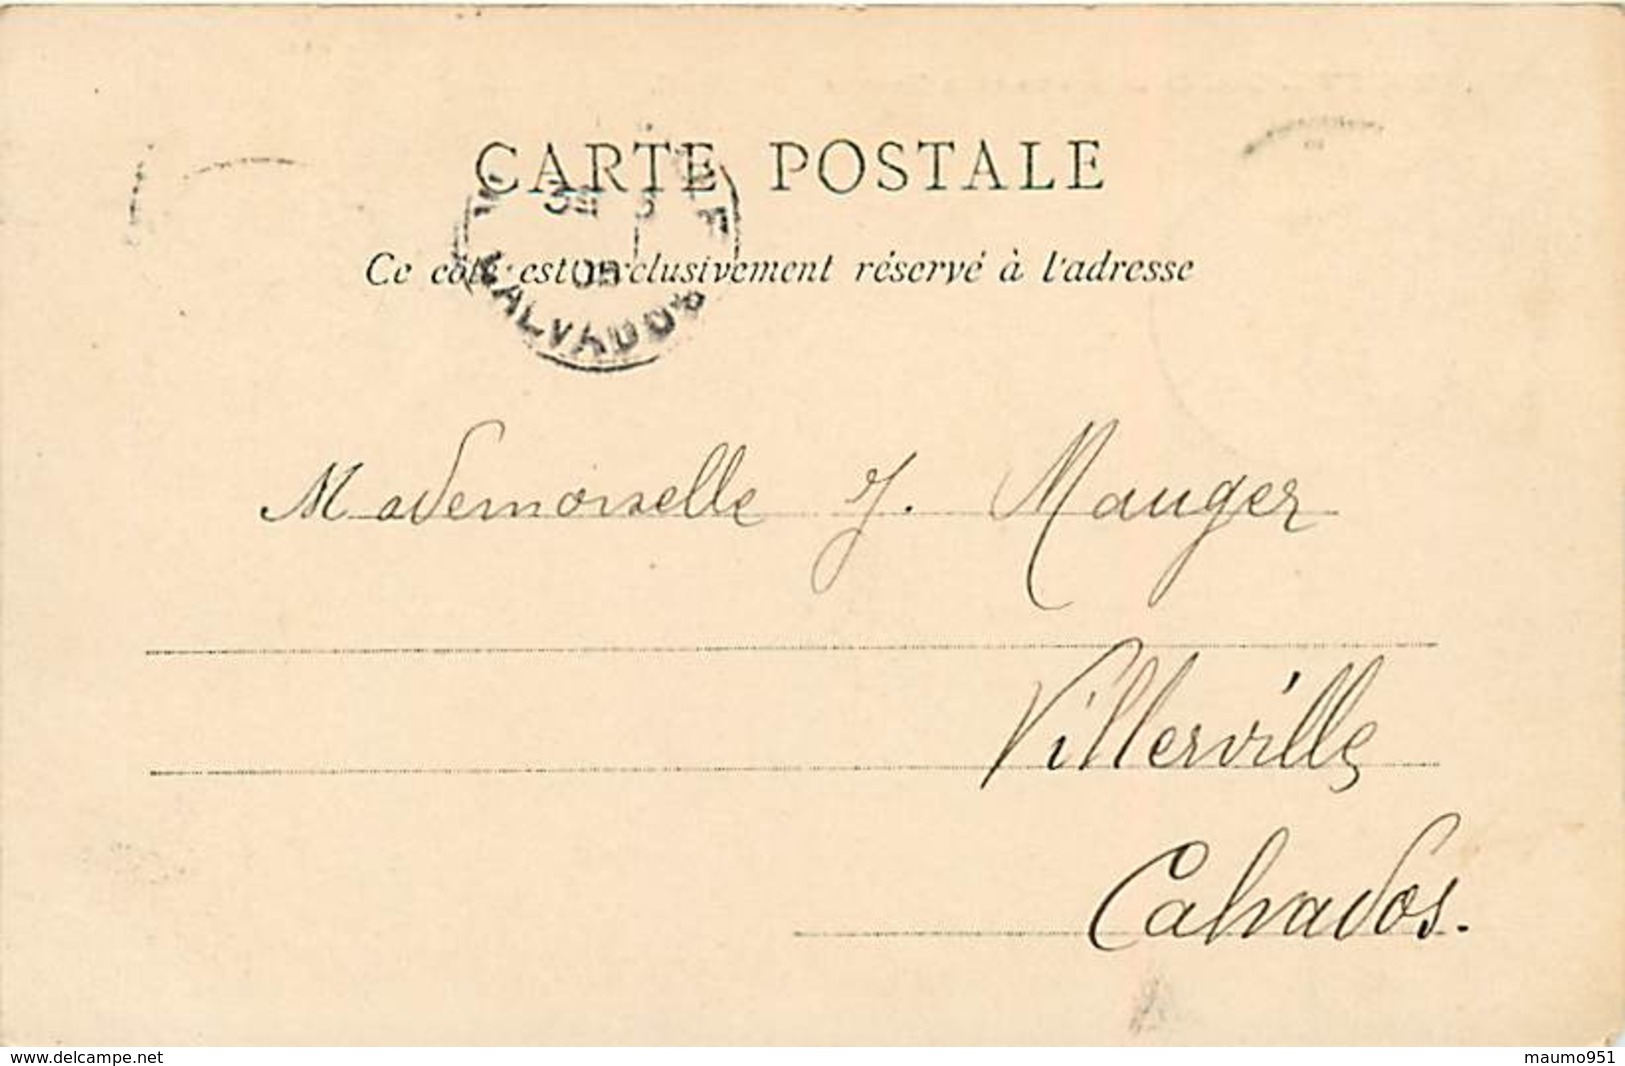 CARTE POSTALE
Ce côté est exclusivement réservé à l'adresse
05
CALVADOS
Mademoiselle J. Mauger
Villerville
Calvados.
www.delcampe.net
maumo951